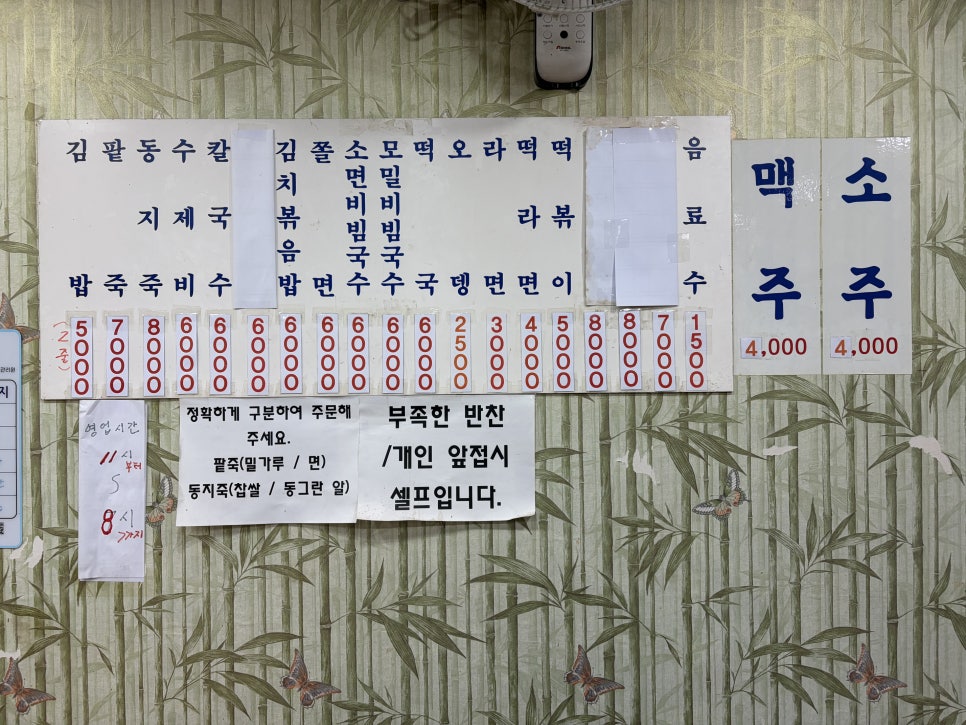 김밥 (2줄) 5000
팥죽 7000
동지죽 8000
수제비 6000
칼국수 6000
6000
김치볶음밥 6000
쫄면 6000
소면비빔국수 6000
모밀비빔국수 6000
떡국 6000
오뎅 2500
라면 3000
떡라면 4000
떡볶이 5000
8000
8000
7000
음료수 1500
맥주 4,000
소주 4,000
영업시간
11시부터
8시까지
정확하게 구분하여 주문해
주세요.
팥죽(밀가루 / 면)
동지죽(찹쌀 / 동그란 알)
부족한 반찬
/개인 앞접시
셀프입니다.